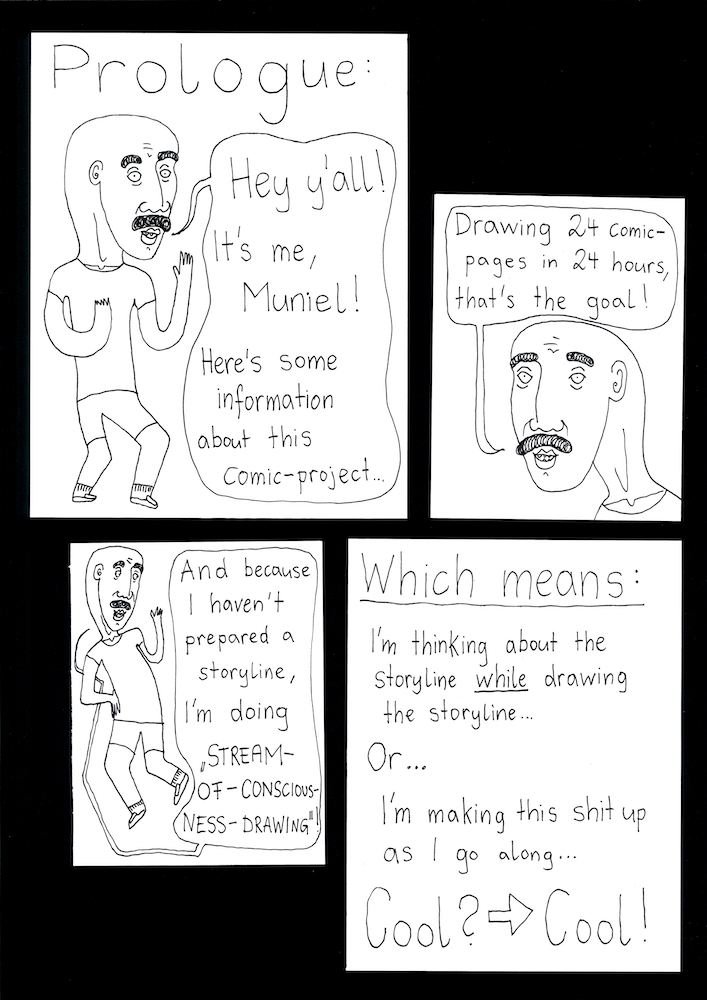 Prologue:
Hey y'all!
It's me,
Muniel!
Here's some
information
about this
comic-project...
Drawing 24 comic-
pages in 24 hours,
that's the goal!
And because
I haven't
prepared a
storyline,
I'm doing
„STREAM-
OF-CONSCIOUS-
NESS-DRAWING"!
Which means:
I'm thinking about the
storyline while drawing
the storyline...
Or...
I'm making this shit up
as I go along...
Cool? ⇨ Cool!